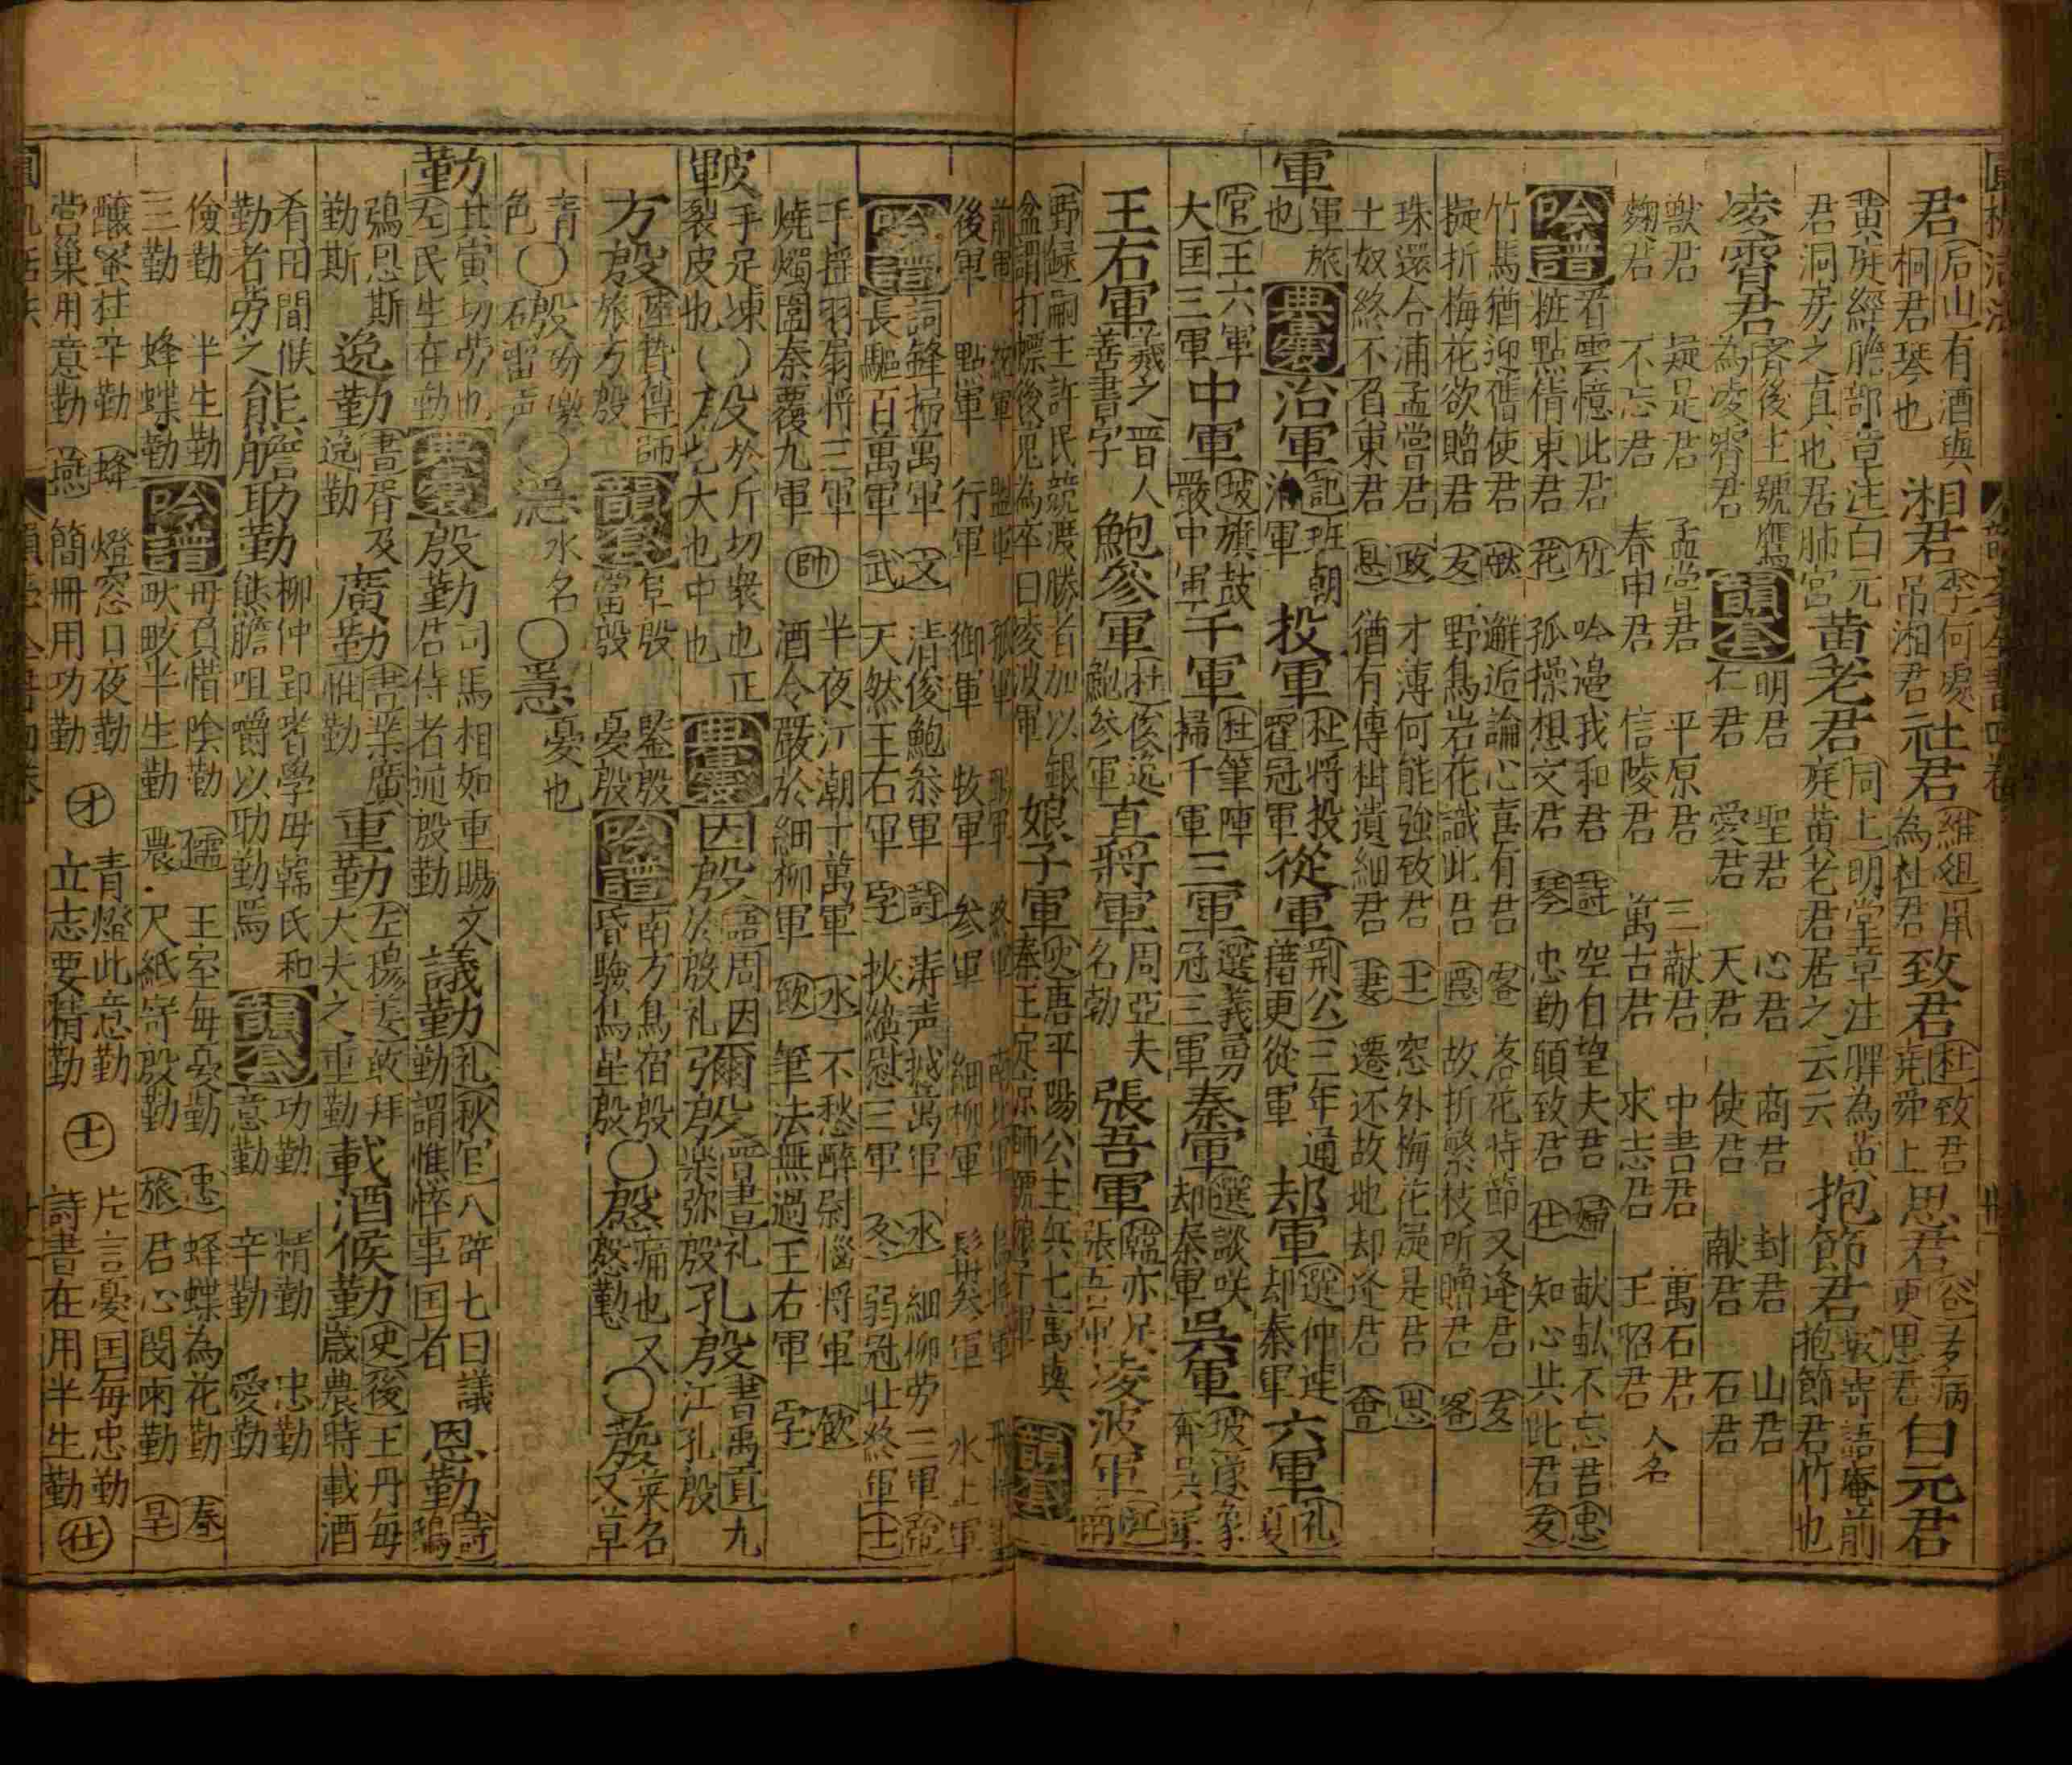 君 后山有酒與桐君琴也 湘君 李何處吊湘君 社君 維俎用為杜君 致君 杜致君堯舜上 思君 谷多病更思君 白元君
黄庭經膽部章注白元君洞房之真也居肺宮 黄老君 同上明堂章注脾為黄庭黄老君居之云云 抱節君 坡寄語庵前抱節君竹也
凌霄君 齊後主號鷹為凌霄君 韻套 明君 聖君 心君 商君 封君 山君
仁君 愛君 天君 使君 献君 石君
獣君 疑是君 孟嘗君 平原君 三献君 中書君 萬石君 人名
麴君 不忘君 春申君 信陵君 萬古君 求志君 王昭君
吟譜 看雲憶此君 竹 吟邉我和君 詩 空自望夫君 婦 献畝不忘君 忠
粧點倩東君 花 孤操想文君 琴 忠勤願致君 仕 知心共此君 友
竹馬猶迎舊使君 献 邂逅論心喜有君 客 落花時節又逢君 友
擬折梅花欲贈君 友 野鳥岩花識此君 隠 故折繁枝所贈君 客
珠還合浦孟嘗君 政 才薄何能強致君 士 窓外梅花疑是君 思
土奴終不召東君 思 猶有傳柑遺細君 妻 還还故地却逢君 會
軍 軍旅也 典要 治軍 記班朝治軍 投軍 杜將投霍冠軍 從軍 荆公三年通籍更從軍 却軍 選仲連却秦軍 六軍 礼夏
官王六軍大国三軍 中軍 坡旗鼓嚴中軍 千軍 杜筆陣掃千軍 三軍 選義勇冠三軍 秦軍 選談咲却秦軍 吳軍 坡遂象奔吳軍
王右軍 羲之晉人善書字 鮑參軍 杜俊逸鮑参軍 直將軍 周亞夫名勃 張吾軍 韓亦足張吾軍 凌波軍 江南
野録嗣主許民競渡勝者加以銀盆謂打標後兎為卒曰凌波軍 娘子軍 史唐平陽公主兵七萬與秦王定京師號娘子軍 韻套
後軍 點軍 行軍 御軍 牧軍 参軍 細柳軍 水上軍
吟譜 詞鋒掃萬軍 文 清俊鮑叅軍 詩 涛声蹙萬軍 水 細柳劳三軍 帝
長驅百萬軍 武 天然王右軍 字 挾纊慰三軍 冬 弱冠壮終軍 士
手揺羽扇将三軍 帥 半夜江潮十萬軍 水 不愁醉尉惱将軍 飲
燒燭圍秦覆九軍 酒令嚴於細柳軍 飲 筆法無過王右軍 字
皸 手足凍裂皮也 殷 於斤切衆也正也大也中也 典要 因殷 語周因於殷礼 彌殷 晋書礼楽弥殷 孔殷 書禹貢九江孔殷
方殷 陸贄傳師旅方殷 韻套 阜殷 鑒殷 富殷 憂殷 吟譜 南方鳥宿殷 昏驗鳥星殷 慇 痛也又慇懃 蒑 菜名又草
青色 石雷声 水名 憂也
勤 其寅切劳也左民生在勤 典要 殷勤 司馬相如重賜文君侍者通殷勤 議勤 礼秋官八辟七曰議勤謂憔悴事国者 恩勤 詩鴟
鴞恩斯勤斯 逸勤 書胥及逸勤 廣勤 書業廣惟勤 重勤 左穆姜敢拜大夫之重勤 載酒候勤 史後王丹毎歳農時載酒
肴田間候勤者劳之 熊膽助勤 柳仲郢皆學毋韓氏和熊膽咀嚼以助勤焉 韻套 功勤 精勤 忠勤 意勤 辛勤 愛勤
儉勤 半生勤 吟譜 毋負惜陰勤 儒 王室毎憂勤 忠 蜂蝶為花勤 春
三勤 蜂蝶勤 畎畝半生勤 農 尺紙寄殷勤 旅 君心閔雨勤 旱
釀蜜枉辛勤 蜂 燈窓日夜勤 才 青燈此意勤 士 片言憂国毎忠勤 仕
営巢用意勤 燕 簡冊用功勤 立志要精勤 詩書在用半生勤